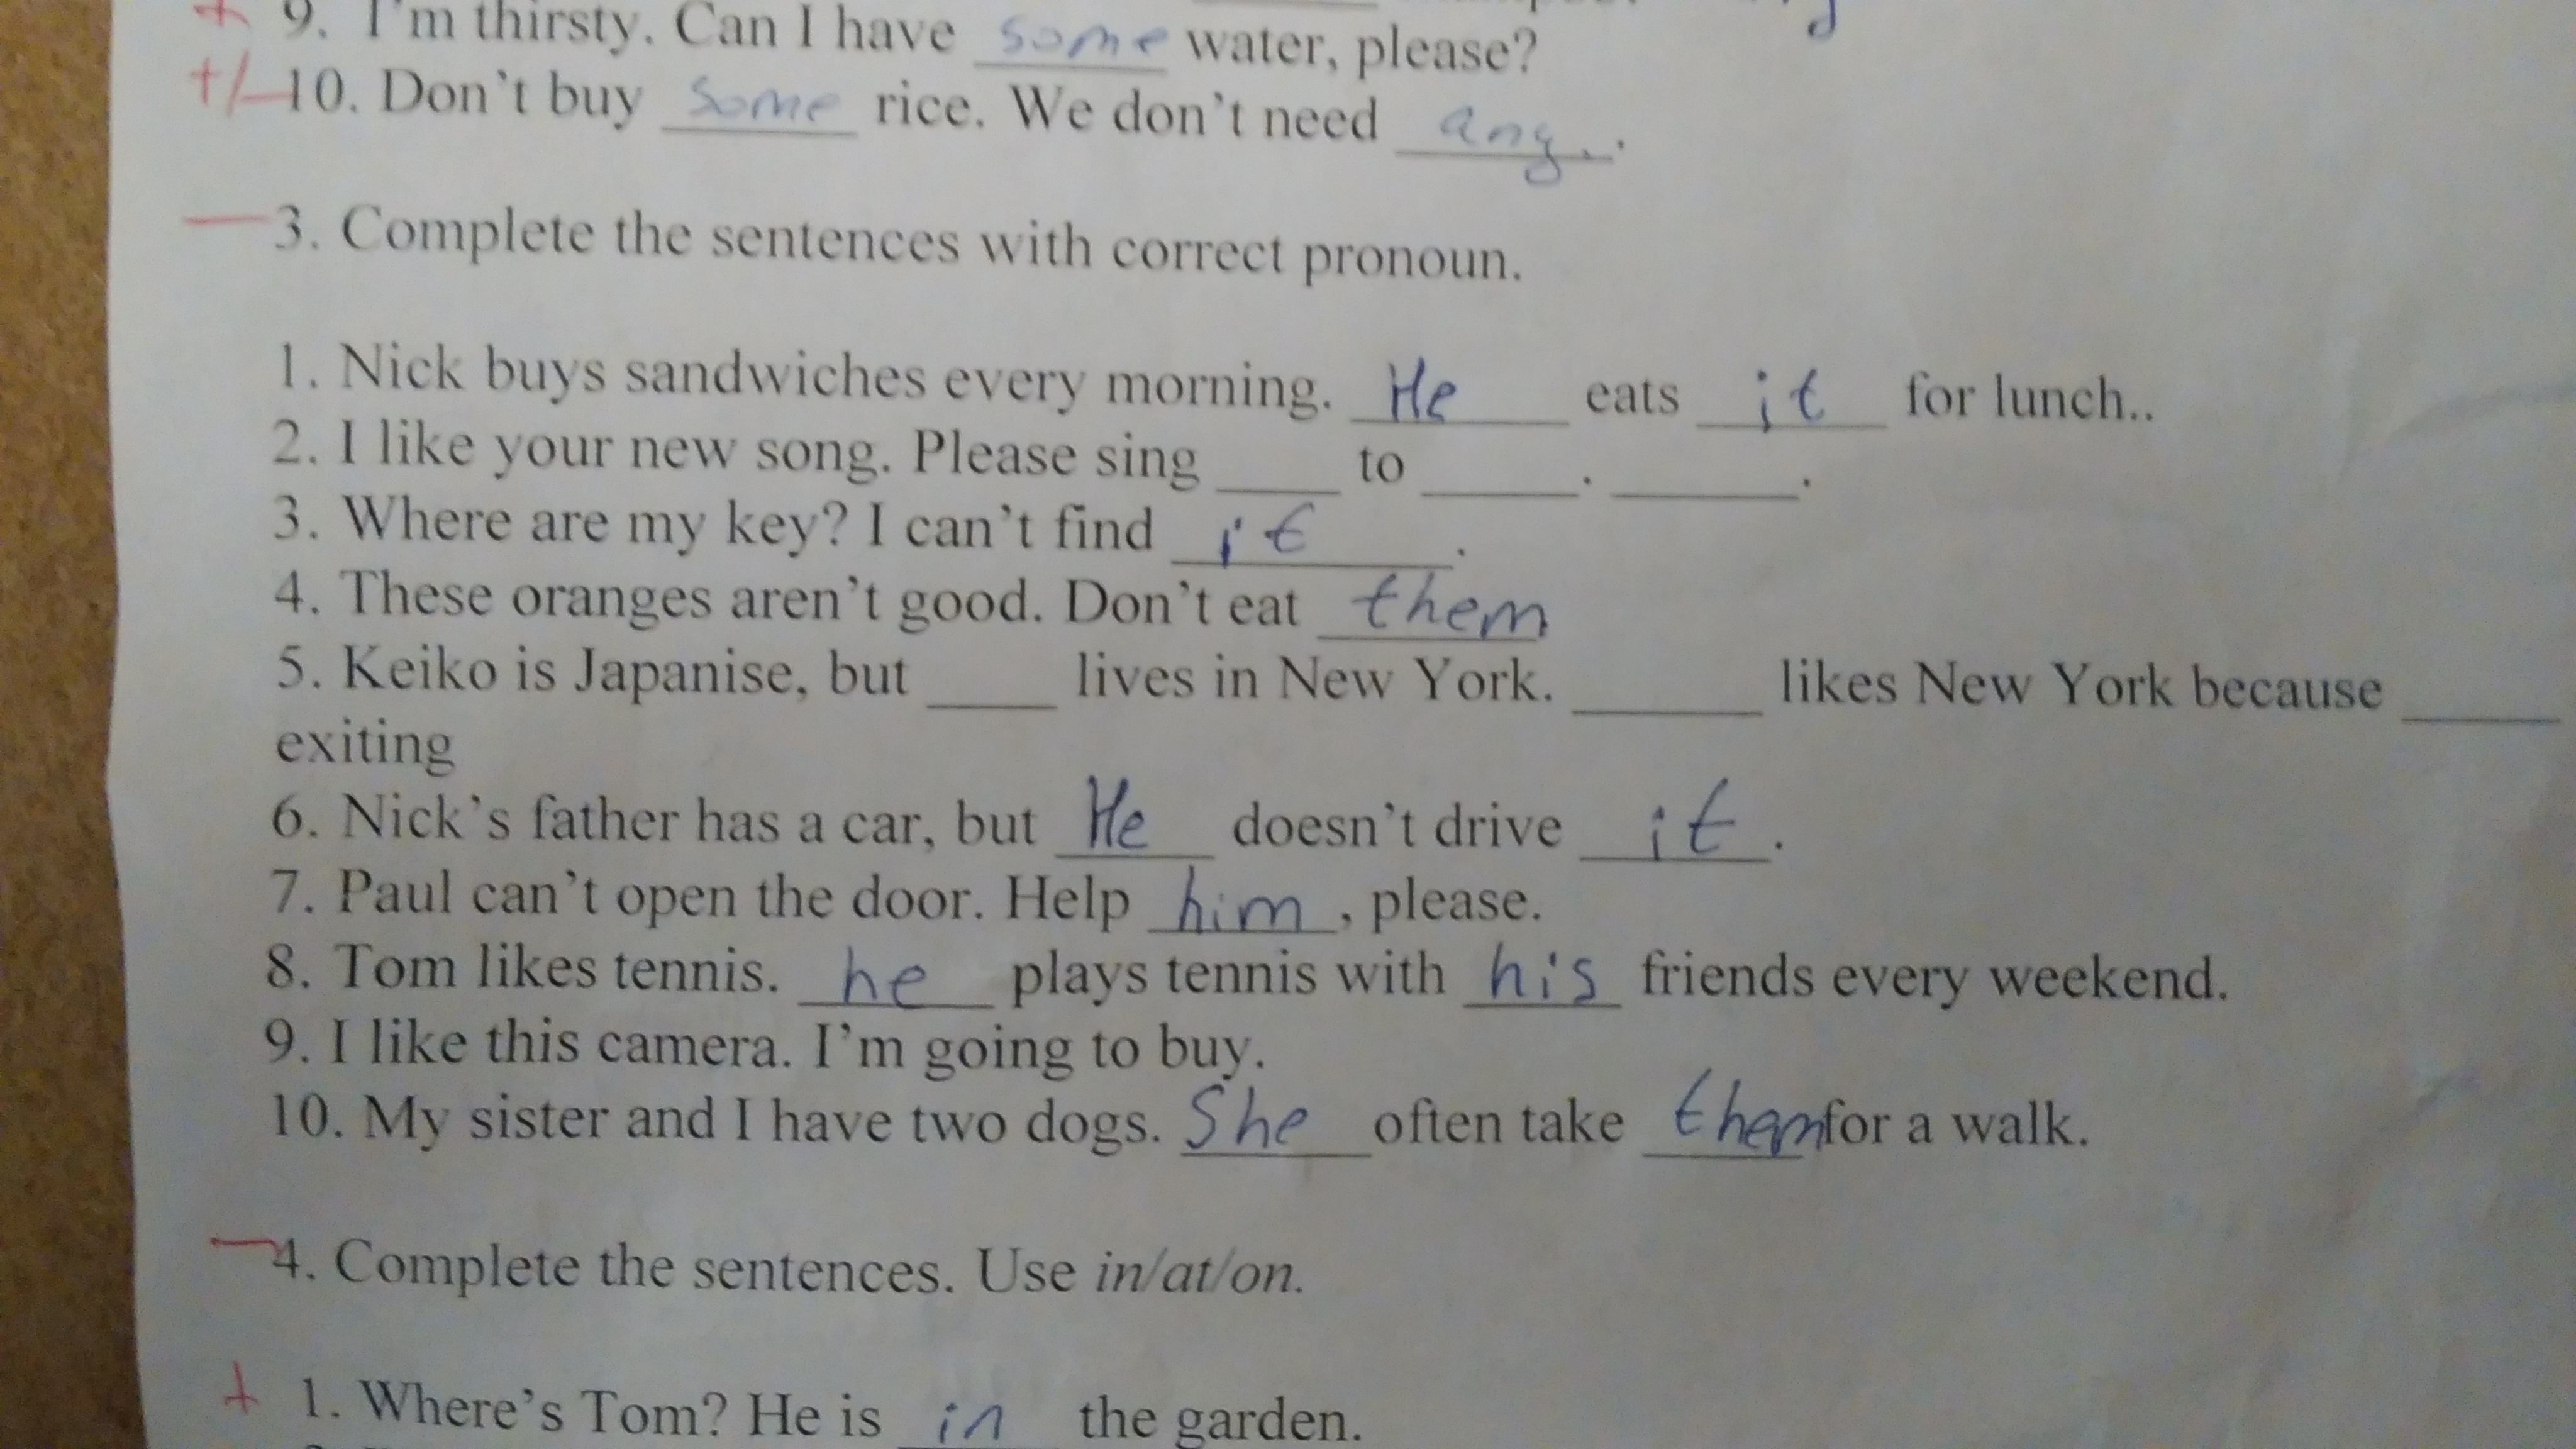 + 9. I'm thirsty. Can I have some water, please?
+/- 10. Don't buy some rice. We don't need any.
— 3. Complete the sentences with correct pronoun.
1. Nick buys sandwiches every morning. He eats it for lunch..
2. I like your new song. Please sing ____ to _____. ______.
3. Where are my key? I can't find it.
4. These oranges aren't good. Don't eat them
5. Keiko is Japanise, but ____ lives in New York. ______ likes New York because _____
exiting
6. Nick's father has a car, but He doesn't drive it.
7. Paul can't open the door. Help him, please.
8. Tom likes tennis. he plays tennis with his friends every weekend.
9. I like this camera. I'm going to buy.
10. My sister and I have two dogs. She often take them for a walk.
— 4. Complete the sentences. Use in/at/on.
+ 1. Where's Tom? He is in the garden.